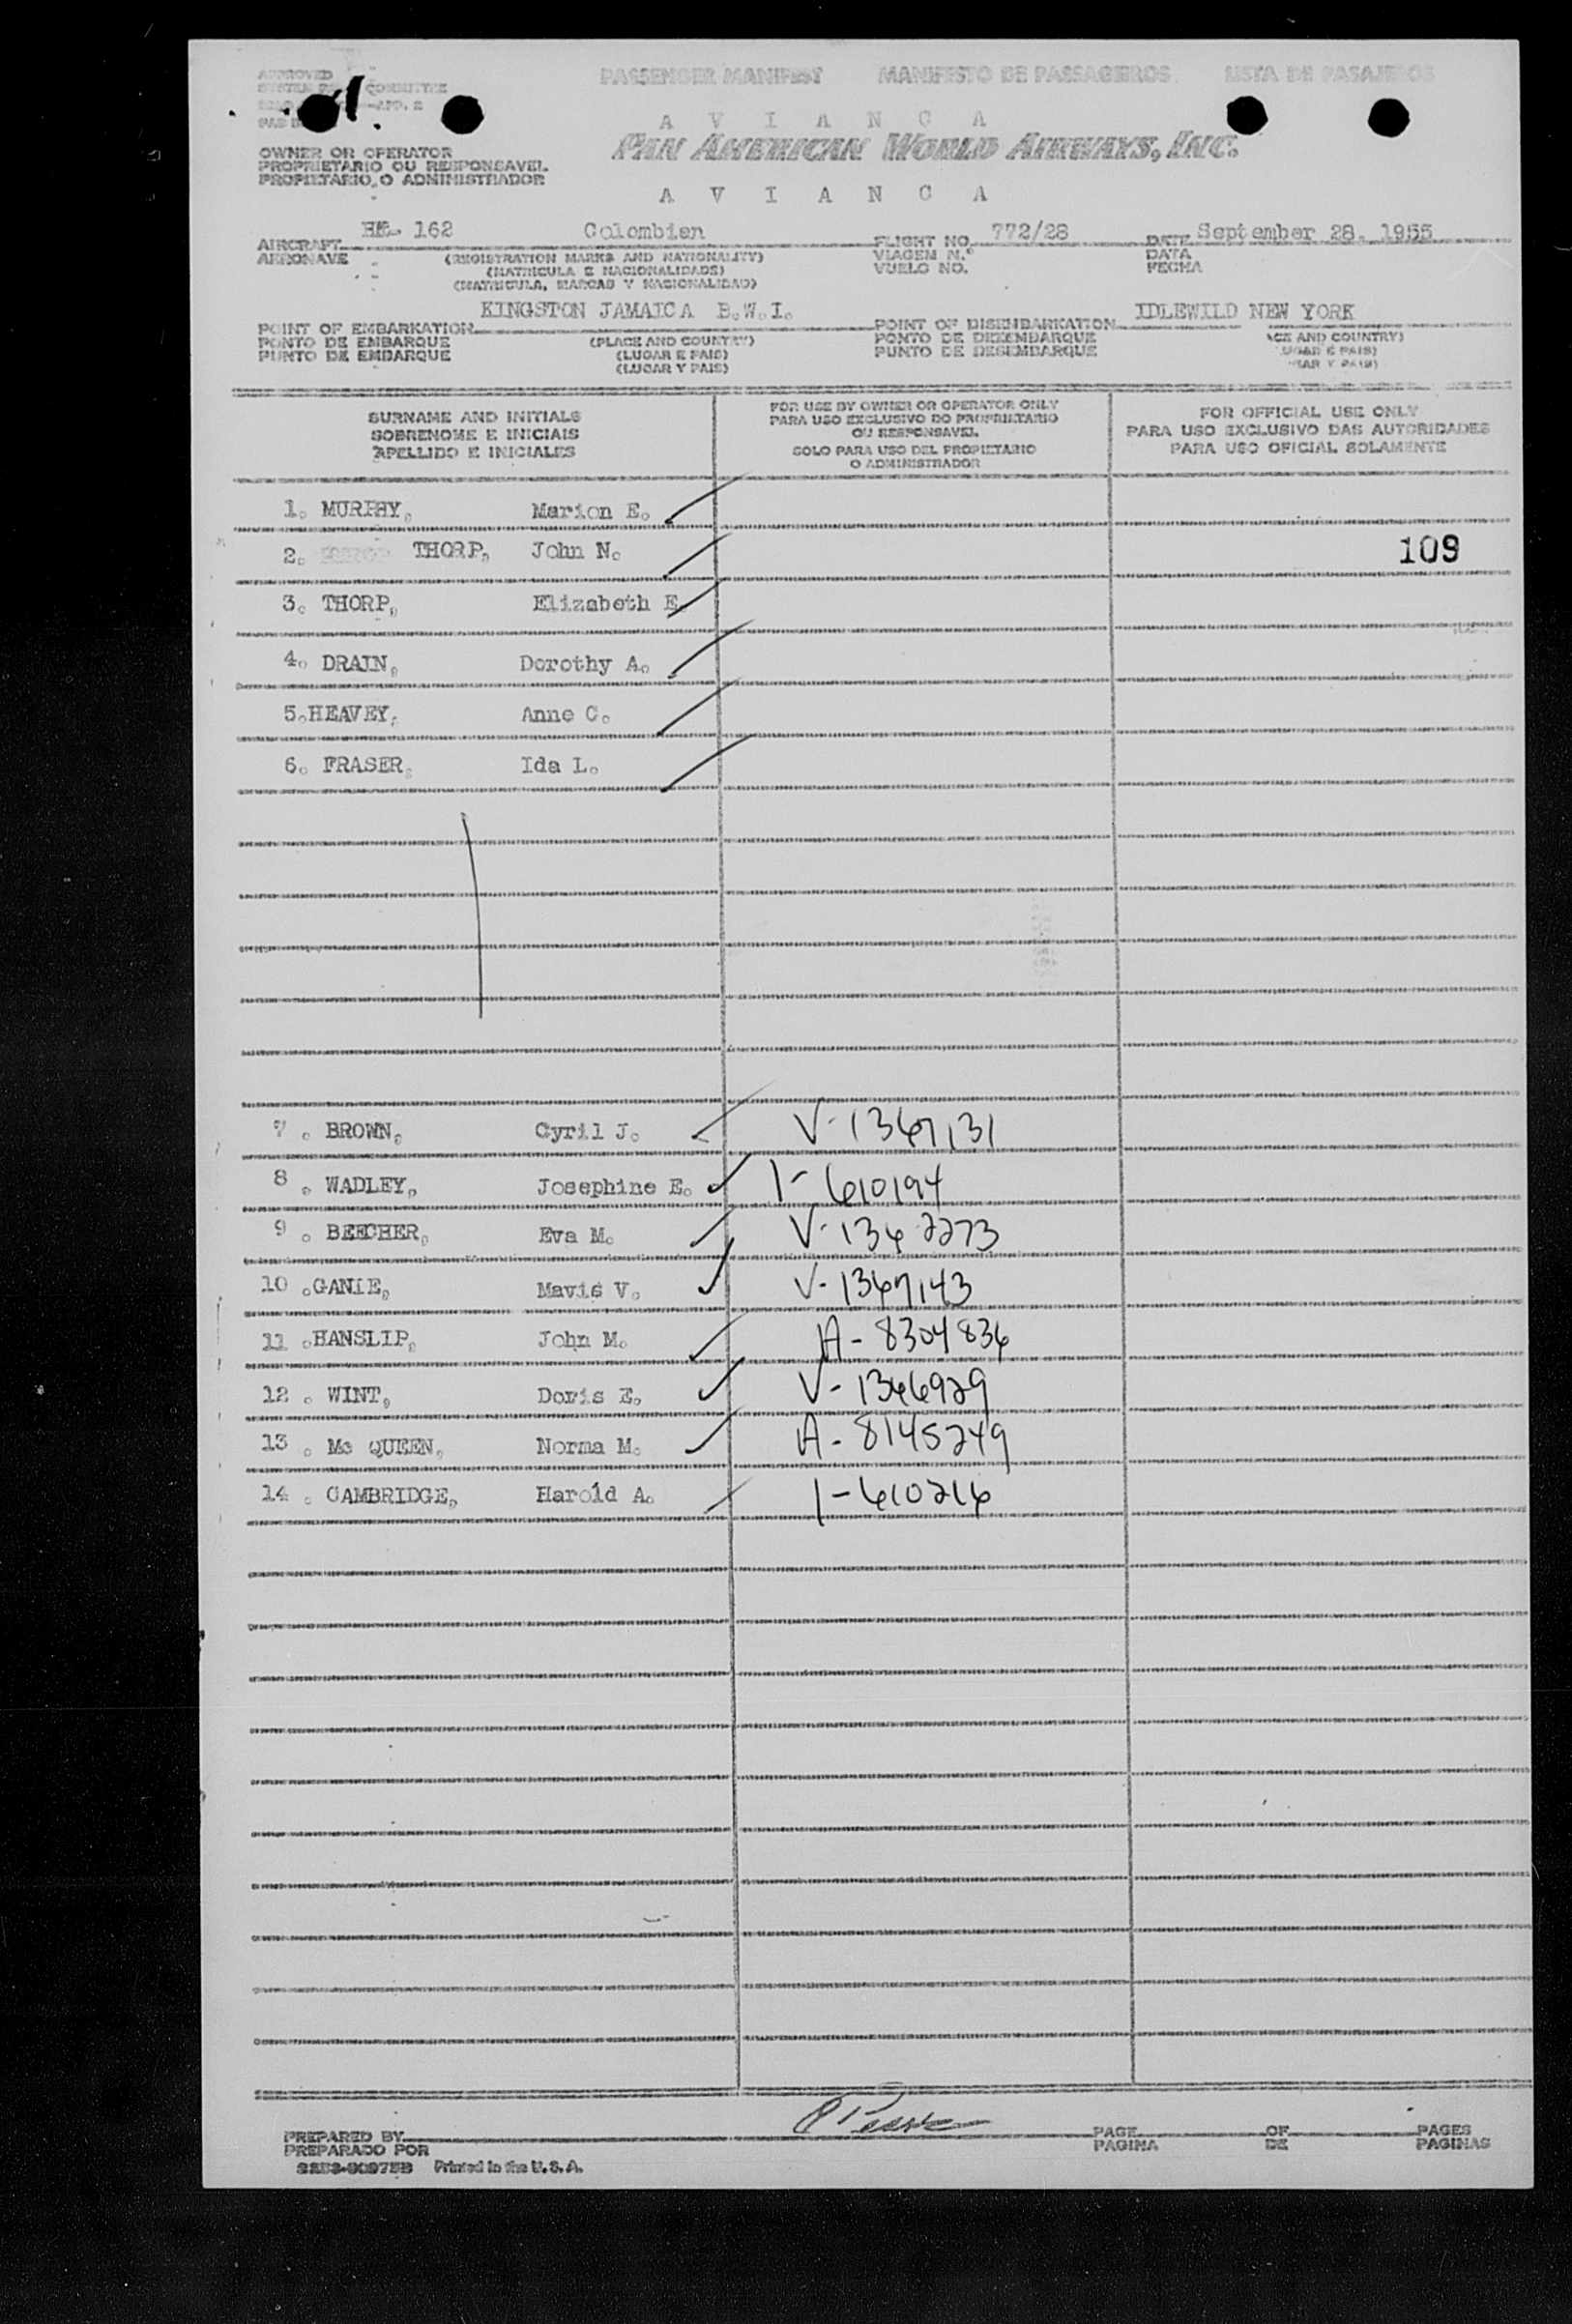 APPROVED
PASSENGER MANIFEST MANIFESTO DE PASSAGEIROS LISTA DE PASAJEROS
COMMITTEE
A V I A N C A
PAN AMERICAN WORLD AIRWAYS, INC.
OWNER OR OPERATOR
PROPRIETARIO OU RESPONSAVEL
PROPIETARIO O ADMINISTRADOR
A V I A N C A
AIRCRAFT HK- 162 Colombian FLIGHT NO. 772/28 DATE September 28, 1955
AERONAVE (REGISTRATION MARKS AND NATIONALITY) VIAGEM N.º DATA
(MATRICULA E NACIONALIDADE) VUELO NO. FECHA
(MATRICULA, MARCAS Y NACIONALIDAD)
POINT OF EMBARKATION KINGSTON JAMAICA B.W.I. POINT OF DISEMBARKATION IDLEWILD NEW YORK
PONTO DE EMBARQUE (PLACE AND COUNTRY) PONTO DE DESEMBARQUE CE AND COUNTRY)
PUNTO DE EMBARQUE (LUGAR E PAIS) PUNTO DE DESEMBARQUE UGAR E PAIS)
(LUGAR Y PAIS) GAR Y PAIS)
SURNAME AND INITIALS
SOBRENOME E INICIAIS
APELLIDO E INICIALES
FOR USE BY OWNER OR OPERATOR ONLY
PARA USO EXCLUSIVO DO PROPRIETARIO
OU RESPONSAVEL
SOLO PARA USO DEL PROPIETARIO
O ADMINISTRADOR
FOR OFFICIAL USE ONLY
PARA USO EXCLUSIVO DAS AUTORIDADES
PARA USO OFICIAL SOLAMENTE
1. MURPHY, Marion E.
2. THORP, John N. 109
3. THORP, Elizabeth E.
4. DRAIN, Dorothy A.
5. HEAVEY, Anne C.
6. FRASER, Ida L.
7. BROWN, Cyril J. V-1367131
8. WADLEY, Josephine E. 1-610194
9. BEECHER, Eva M. V-1362273
10. GANIE, Mavis V. V-1367143
11. HANSLIP, John M. A-8304836
12. WINT, Doris E. V-1366929
13. Mc QUEEN, Norma M. A-8145249
14. CAMBRIDGE, Harold A. 1-610216
PREPARED BY PAGE OF PAGES
PREPARADO POR PAGINA DE PAGINAS
Printed in the U.S.A.